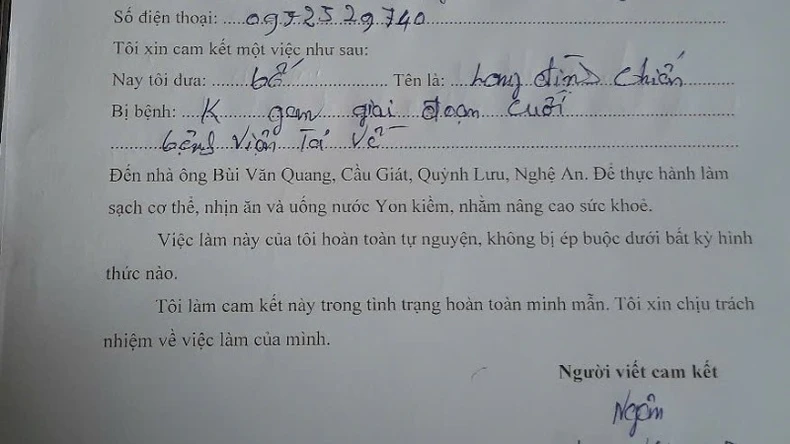 Số điện thoại: ....0975252974​0....
Tôi xin cam kết một việc như sau:
Nay tôi đưa: ....bố.... Tên là: ....đình Chiến
Bị bệnh: ..K gan giai đoạn cuối
bệnh viện Trả Về
Đến nhà ông Bùi Văn Quang, Cầu Giát, Quỳnh Lưu, Nghệ An. Để thực hành làm
sạch cơ thể, nhịn ăn và uống nước Yon kiềm, nhằm nâng cao sức khoẻ.
Việc làm này của tôi hoàn toàn tự nguyện, không bị ép buộc dưới bất kỳ hình
thức nào.
Tôi làm cam kết này trong tình trạng hoàn toàn minh mẫn. Tôi xin chịu trách
nhiệm về việc làm của mình.
Người viết cam kết
Ngôn